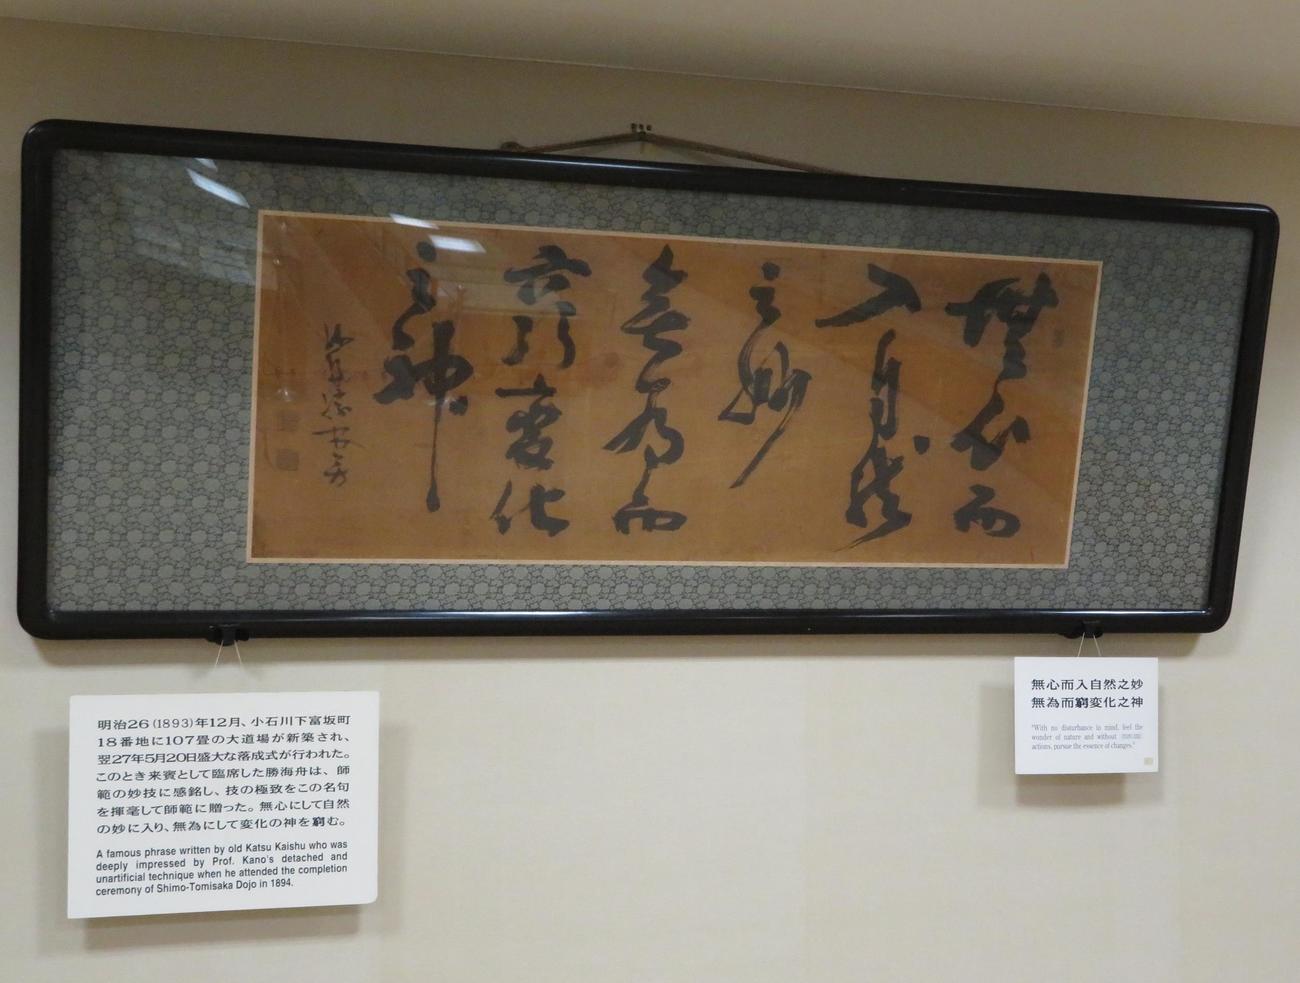 無心而
入自然
之妙
無為而
窮変化
之神
明治26(1893)年12月、小石川下富坂町
18番地に107畳の大道場が新築され、
翌27年5月20日盛大な落成式が行われた。
このとき来賓として臨席した勝海舟は、師
範の妙技に感銘し、技の極致をこの名句
を揮毫して師範に贈った。無心にして自然
の妙に入り、無為にして変化の神を窮む。
A famous phrase written by old Katsu Kaishu who was
deeply impressed by Prof. Kano's detached and
unartificial technique when he attended the completion
ceremony of Shimo-Tomisaka Dojo in 1894.
無心而入自然之妙
無為而窮変化之神
"With no disturbance in mind, feel the
wonder of nature and without
actions, pursue the essence of changes."